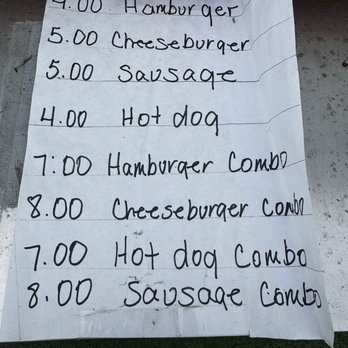 4.00 Hamburger
5.00 Cheeseburger
5.00 Sausage
4.00 Hot dog
7:00 Hamburger Combo
8.00 Cheeseburger Combo
7.00 Hot dog Combo
8.00 Sausage Combo